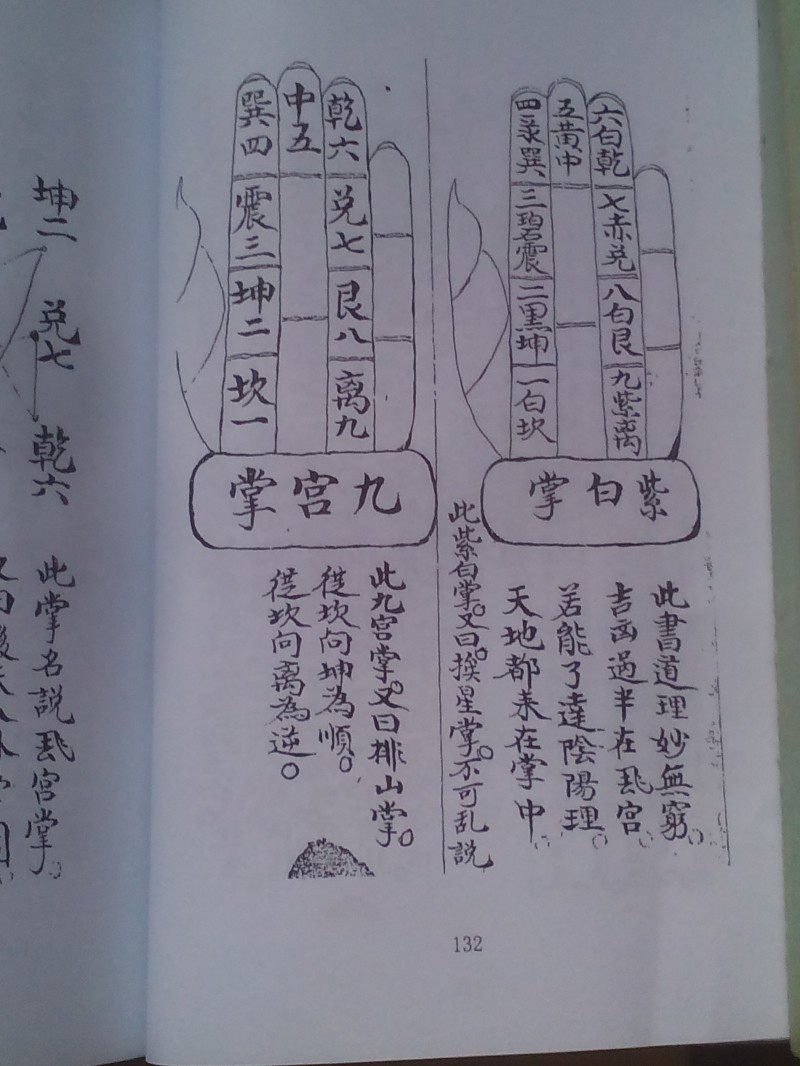 六白乾
七赤兑
八白艮
九紫离
五黄中
四录巽
三碧震
二黑坤
一白坎
紫白掌
此書道理妙無窮。
吉凶過半在飛宮。
若能了達陰陽理。
天地都来在掌中。
此紫白掌。又曰。挨星掌。不可乱説
乾六
兑七
艮八
离九
中五
巽四
震三
坤二
坎一
九宮掌
此九宮掌。又曰排山掌。
從坎向坤為順。
從坎向离為逆。
132
坤二
兑七
乾六
此掌名説飛宮掌。